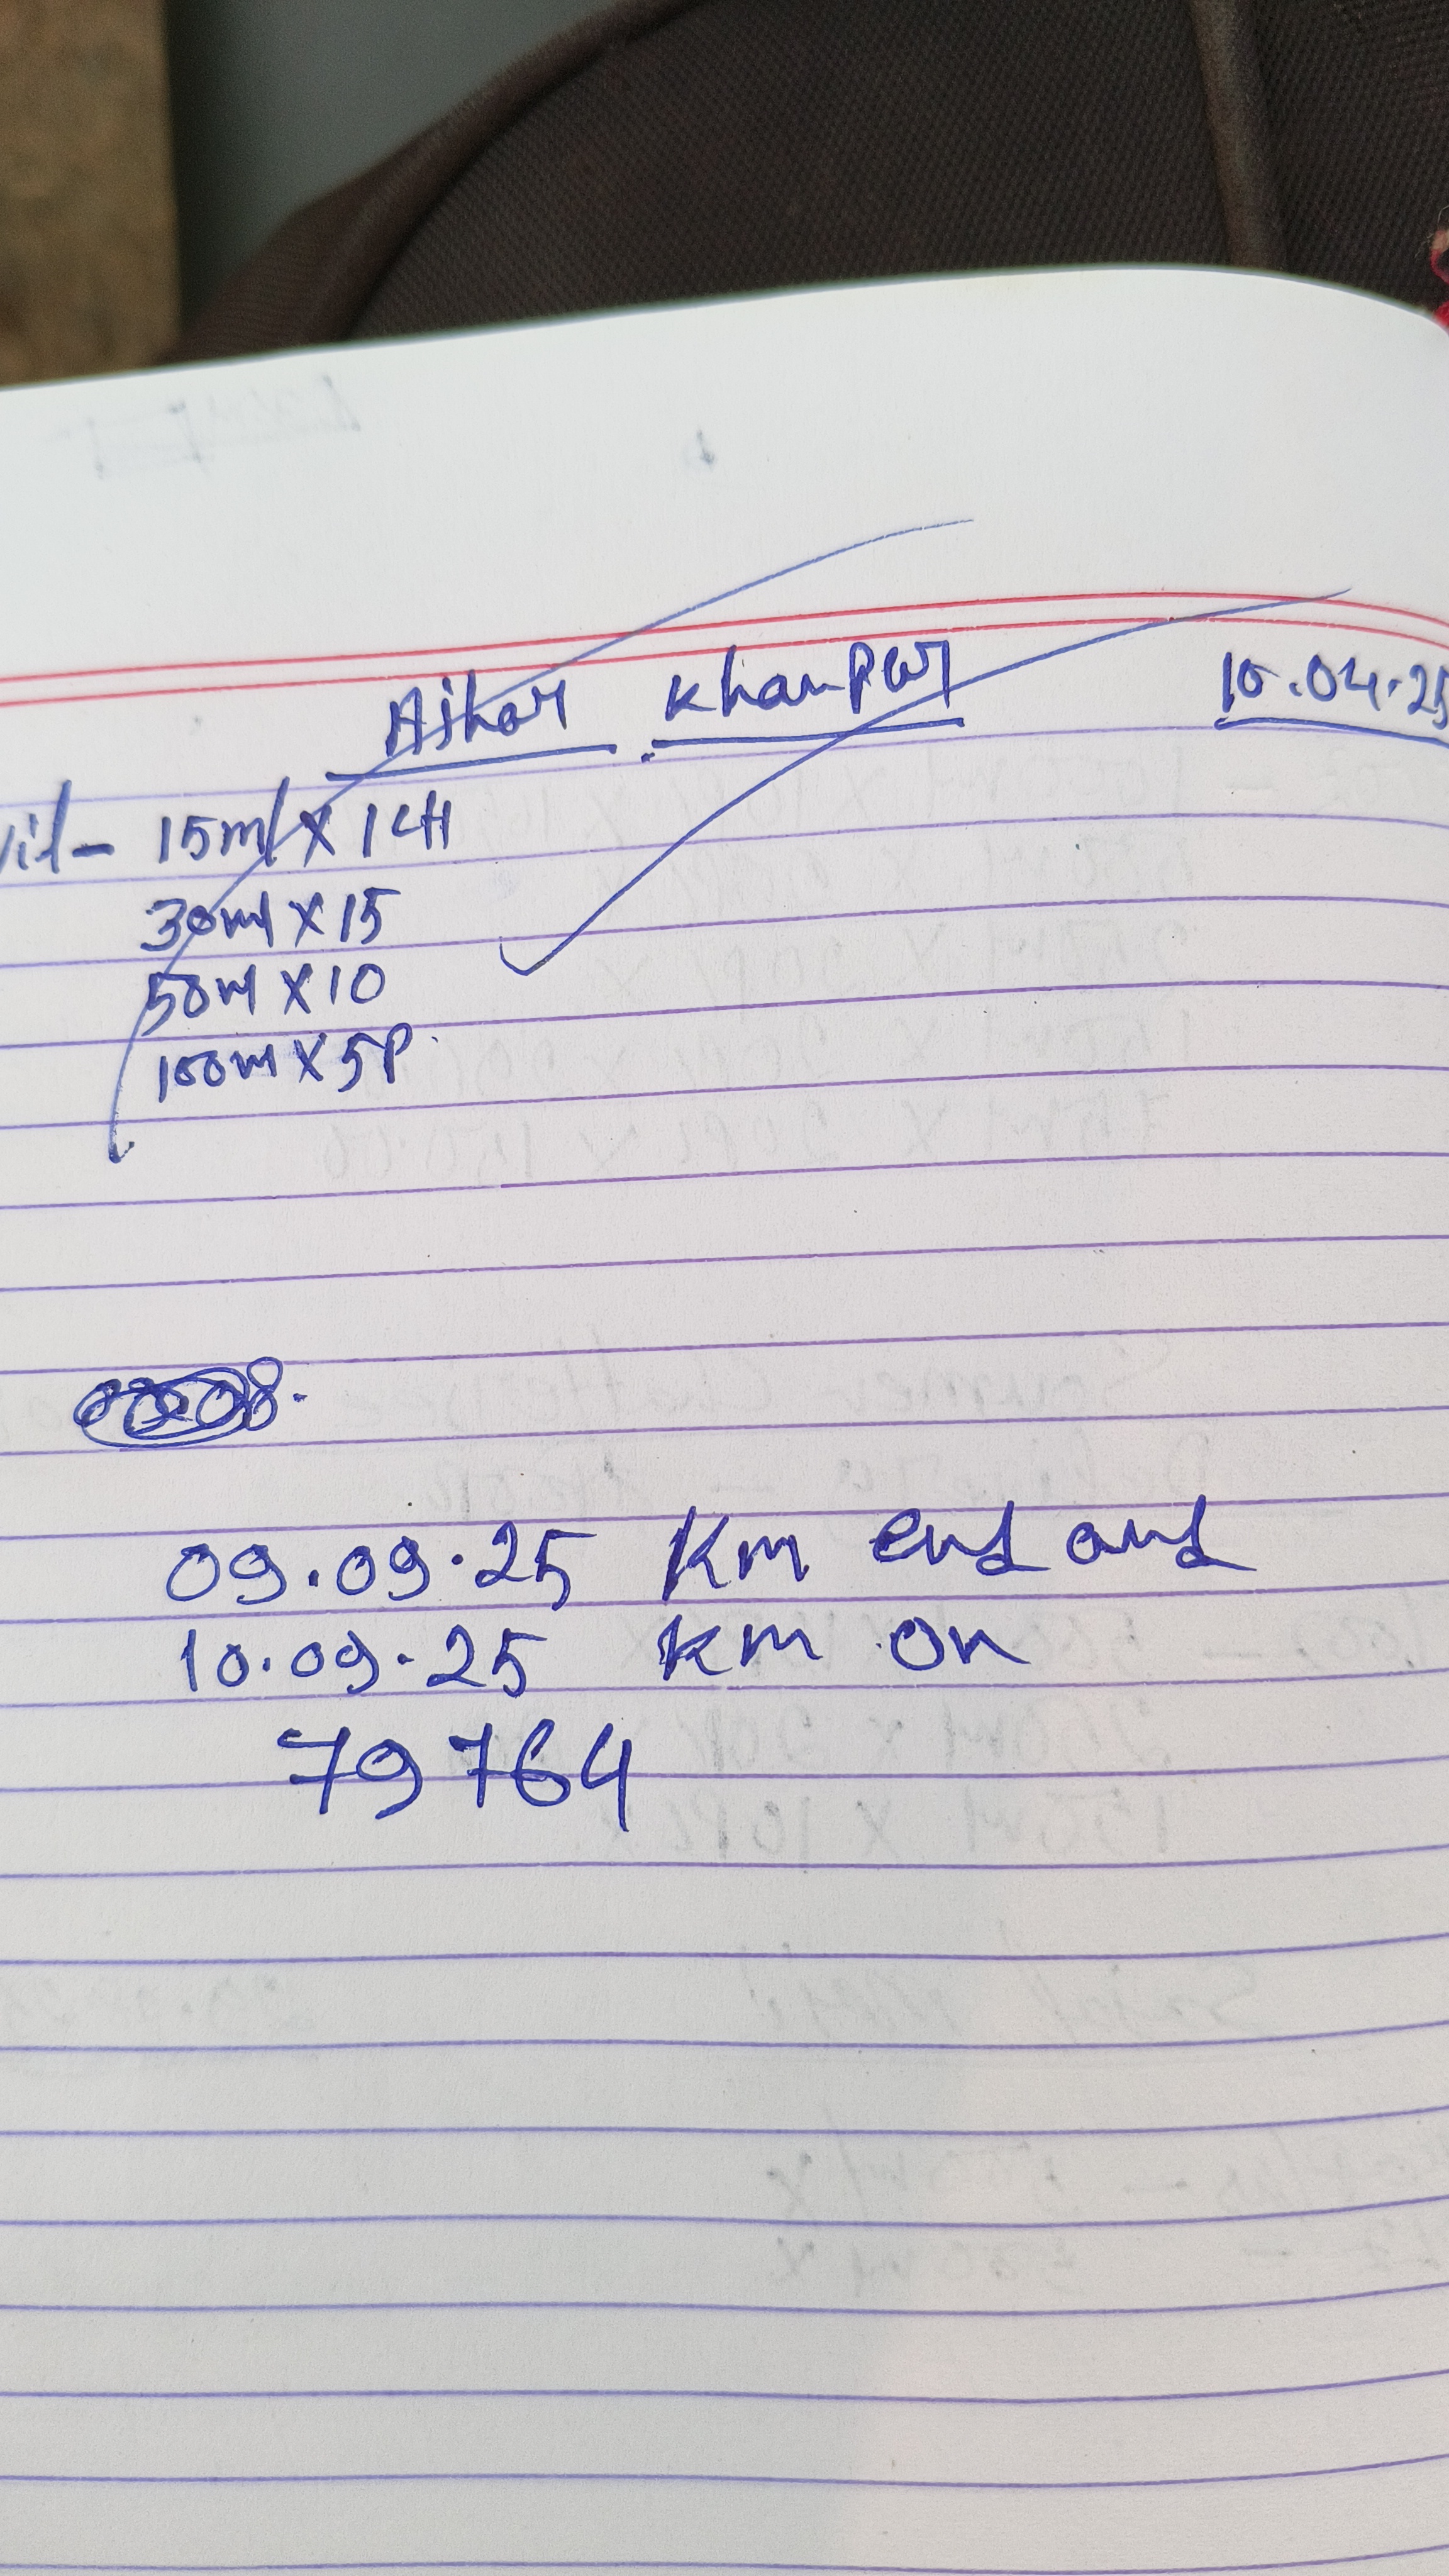 Ajhar Khanpur 10.04.25
15ml X 1CH
30ml X 15
50ml X 10
100ml X 5P.
09.09.25 Km end and
10.09.25 Km on
79764